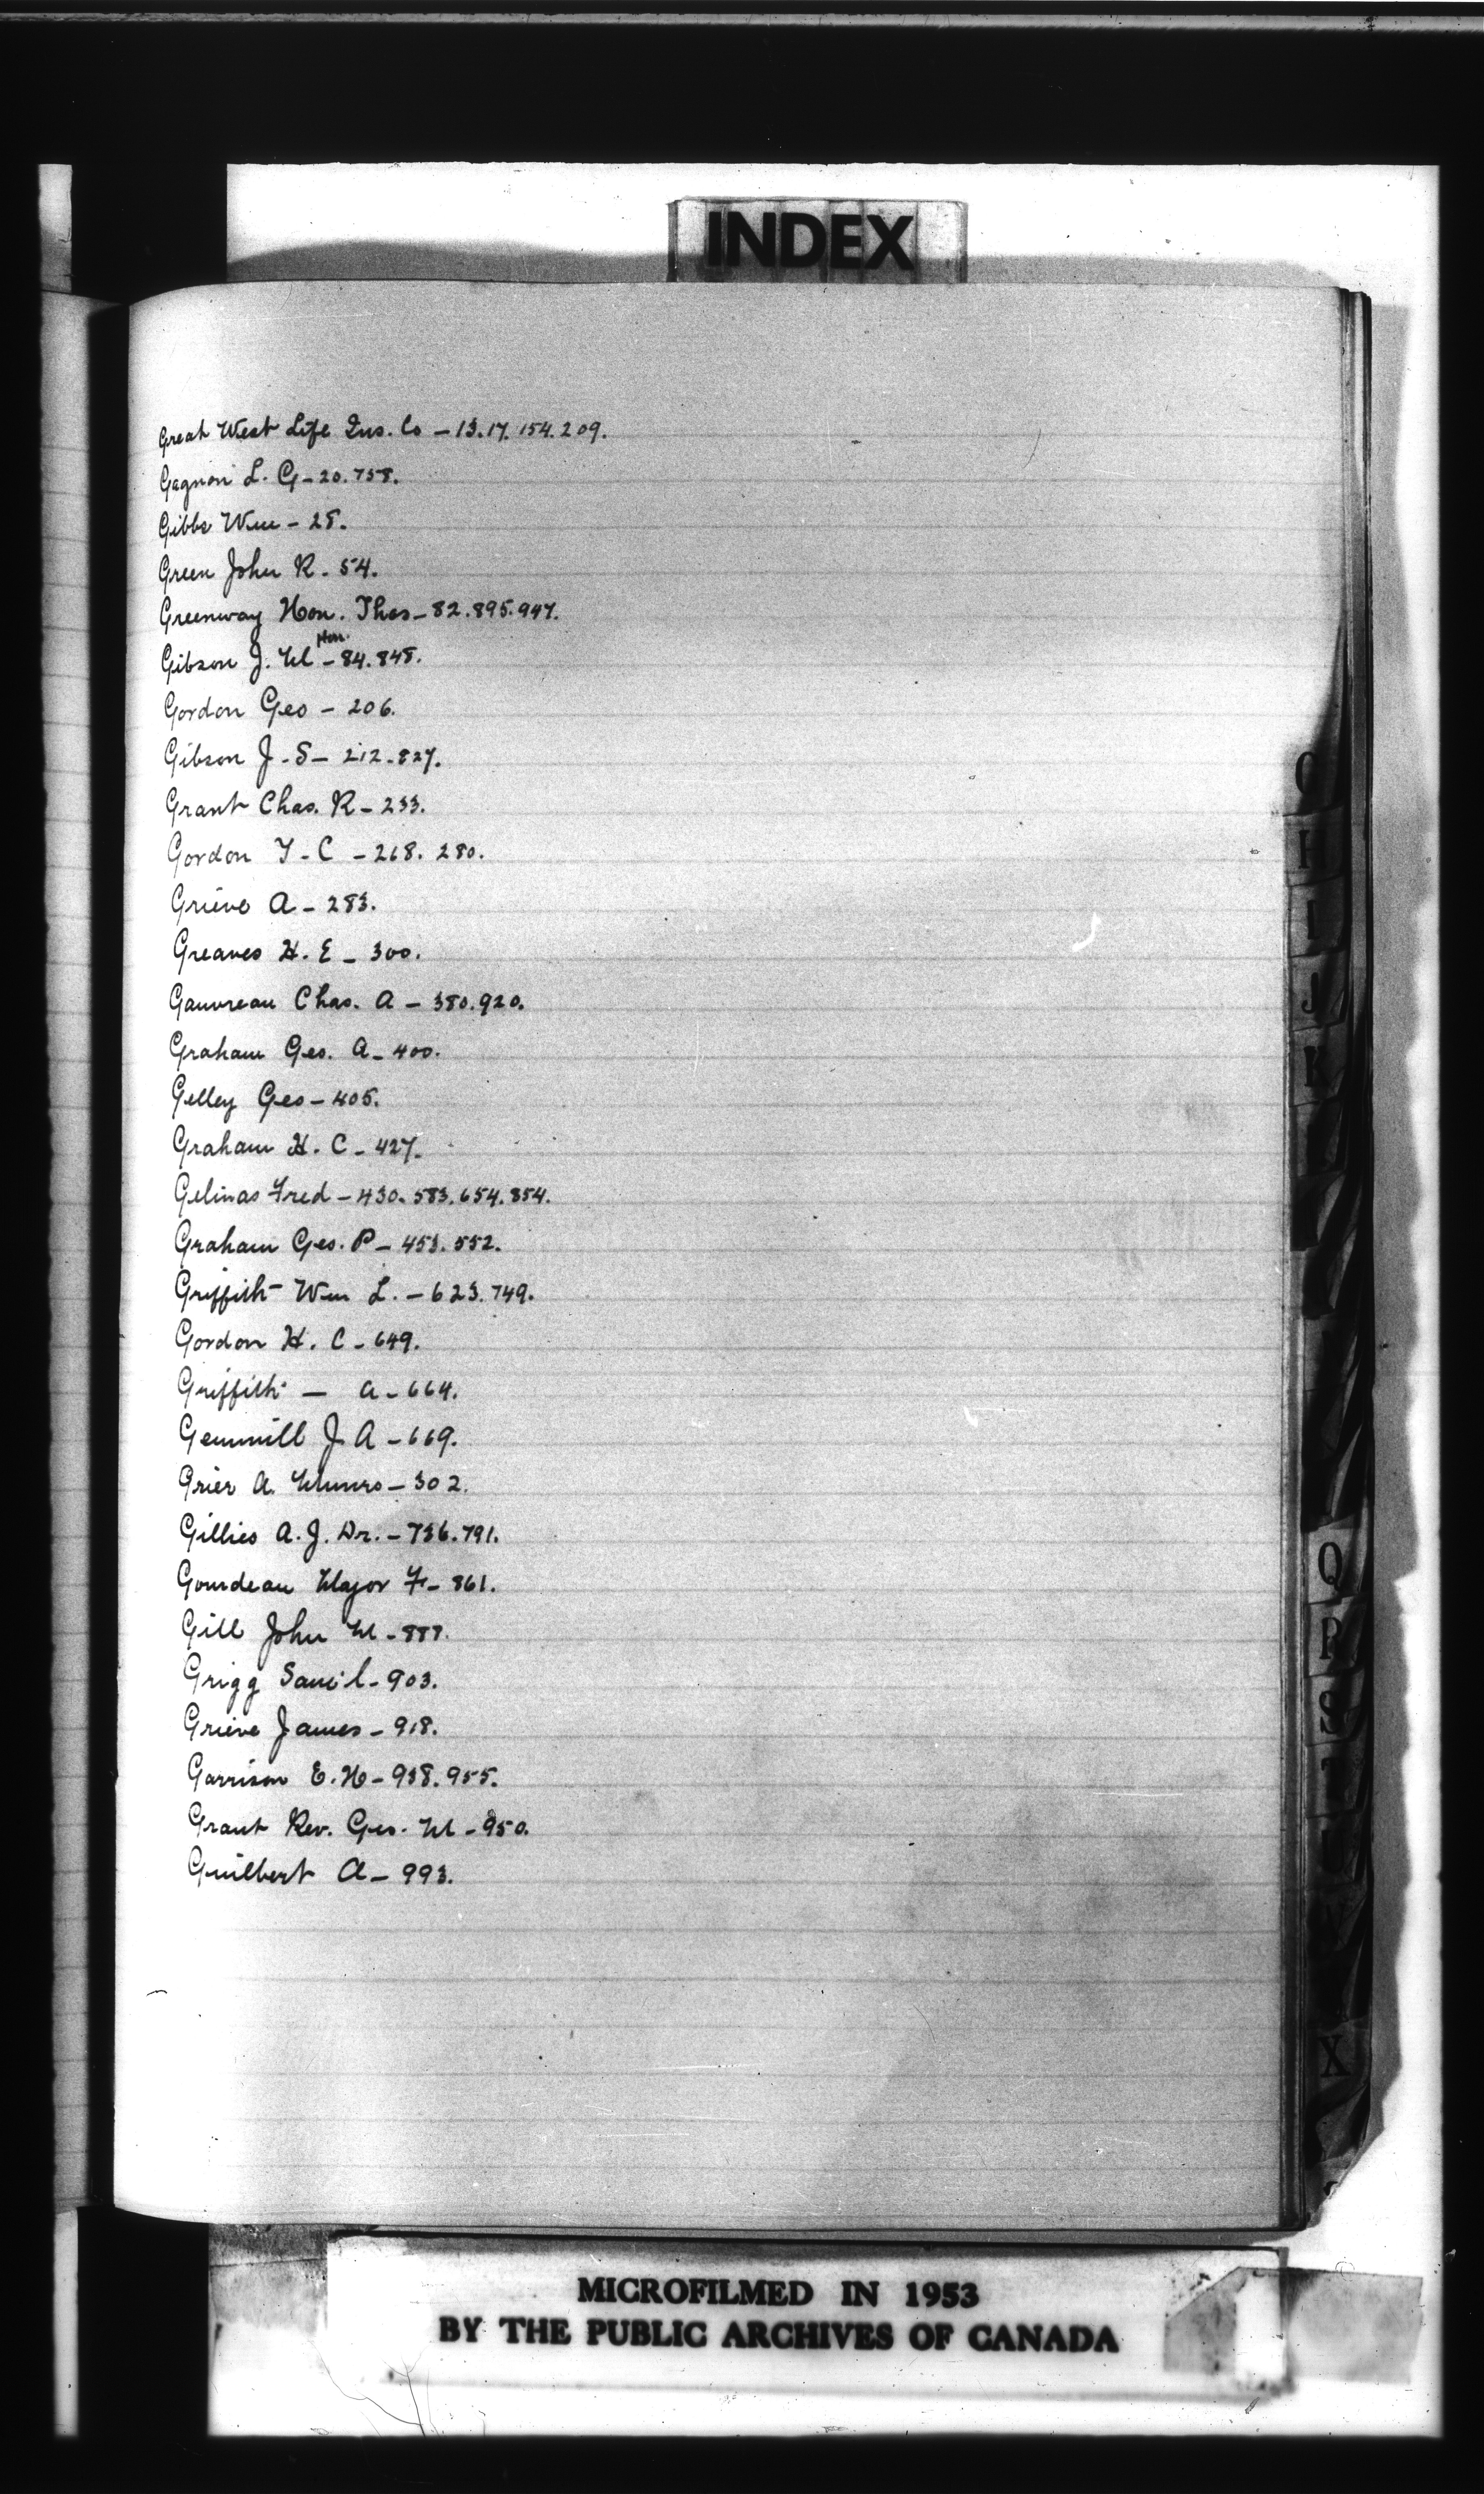 INDEX
Great West Life Ins. Co - 13.17.154.209.
Gagnon L. G - 20.758.
Gibbs Wm - 28.
Green John R. 54.
Greenway Hon. Thos - 82.895.947.
Hon.
Gibson J. M - 84.848.
Gordon Geo - 206.
Gibson J. S - 212.827.
Grant Chas. R - 233.
Gordon T. C - 268. 280.
Grieve A - 283.
Greaves H. E - 300.
Gauvreau Chas. A - 380.920.
Graham Geo. A - 400.
Gelley Geo - 405.
Graham H. C - 427.
Gelinas Fred - 430. 583. 654. 854.
Graham Geo. P - 453. 552.
Griffith Wm L. - 623. 749.
Gordon H. C - 649.
Griffith — A - 664.
Gemmill J. A - 669.
Grier A. Munro - 302.
Gillies A. J. Dr. - 736.791.
Gourdeau Major F - 861.
Gill John M - 888.
Grigg Sam'l - 903.
Grieve James - 918.
Garrison E. H - 938. 955.
Grant Rev. Geo. M - 950.
Guilbert A - 993.
G
H
I
J
K
Q
P
S
X
MICROFILMED IN 1953
BY THE PUBLIC ARCHIVES OF CANADA